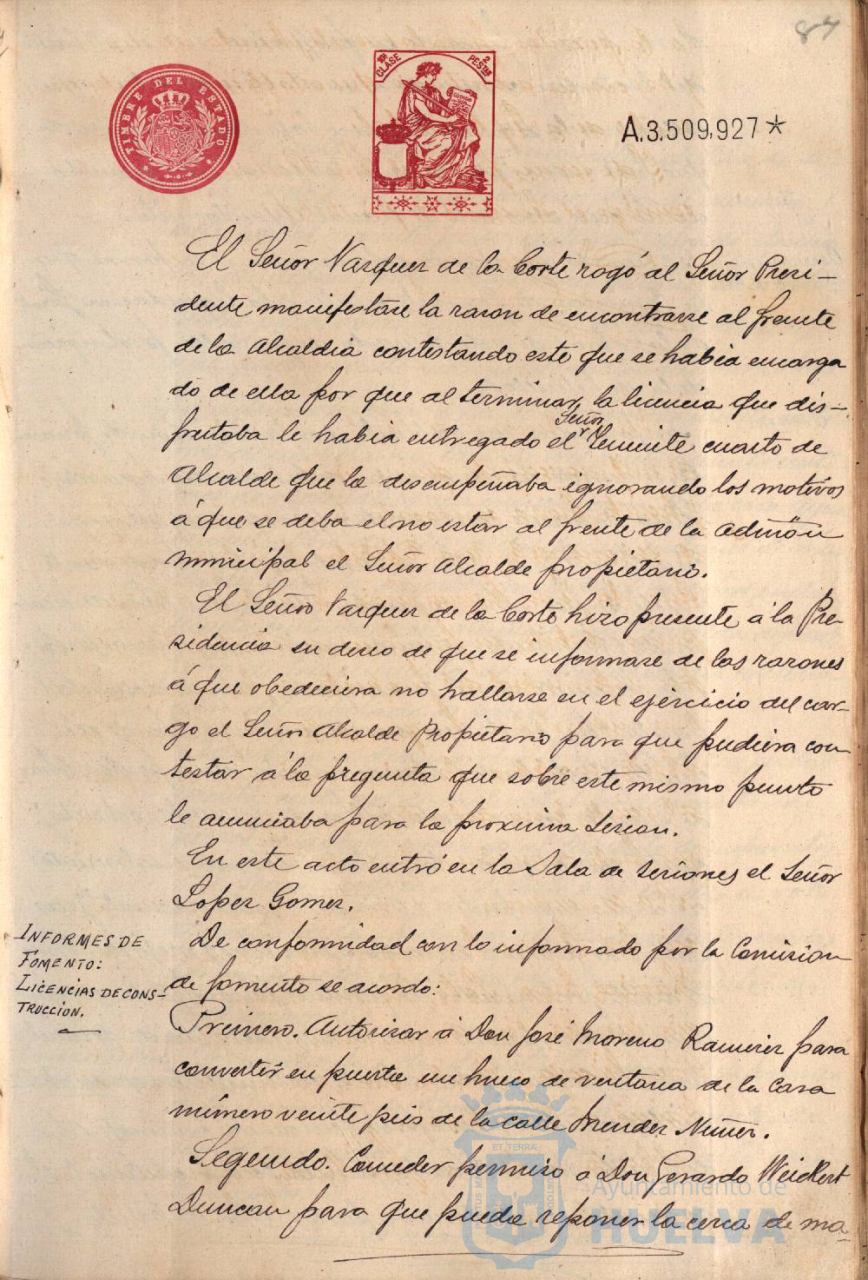 87
TIMBRE DEL ESTADO
10ª CLASE
2 PESTAS
A.3.509,927*
El Señor Vazquez de la Corte rogó al Señor Presi-
dente manifestase la razon de encontrarse al frente
de la Alcaldia contestando este que se habia encarga
do de ella por que al terminar la licencia que dis-
frutaba le habia entregado el Señor Teniente cuarto de
Alcalde que la desempeñaba ignorando los motivos
á que se deba el no estar al frente de la admön
municipal el Señor Alcalde propietario.
El Señor Vazquez de la Corte hizo presente á la Pre-
sidencia su deseo de que se informase de las razones
á que obedeciera no hallarse en el ejercicio del car-
go el Señor Alcalde Propietario para que pudiera con
testar á la pregunta que sobre este mismo punto
le anunciaba para la proxima sesion.
En este acto entró en la Sala de sesiones el Señor
Lopez Gomez.
INFORMES DE
FOMENTO:
LICENCIAS DE CONS-
TRUCCION.
De conformidad con lo informado por la Comision
de fomento se acordo:
Primero. Autorizar á Don José Moreno Ramirez para
convertir en puerta un hueco de ventana de la casa
número veinte seis de la calle Mendez Nuñez.
Segundo. Conceder permiso á Don Gerardo Weickert
Duncan para que pueda reponer la cerca de ma-
ET TERRA
Ayuntamiento de
HUELVA